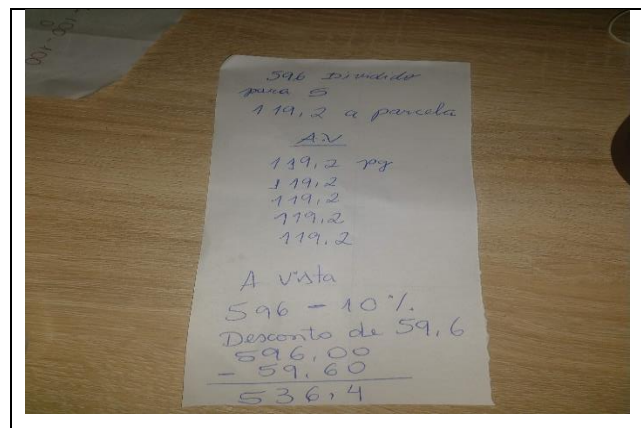 596 Dividido
para 5
119,2 a parcela
A.V
119,2 pg
119,2
119,2
119,2
119,2
A vista
596 - 10%.
Desconto de 59,6
596,00
- 59,60
536,4